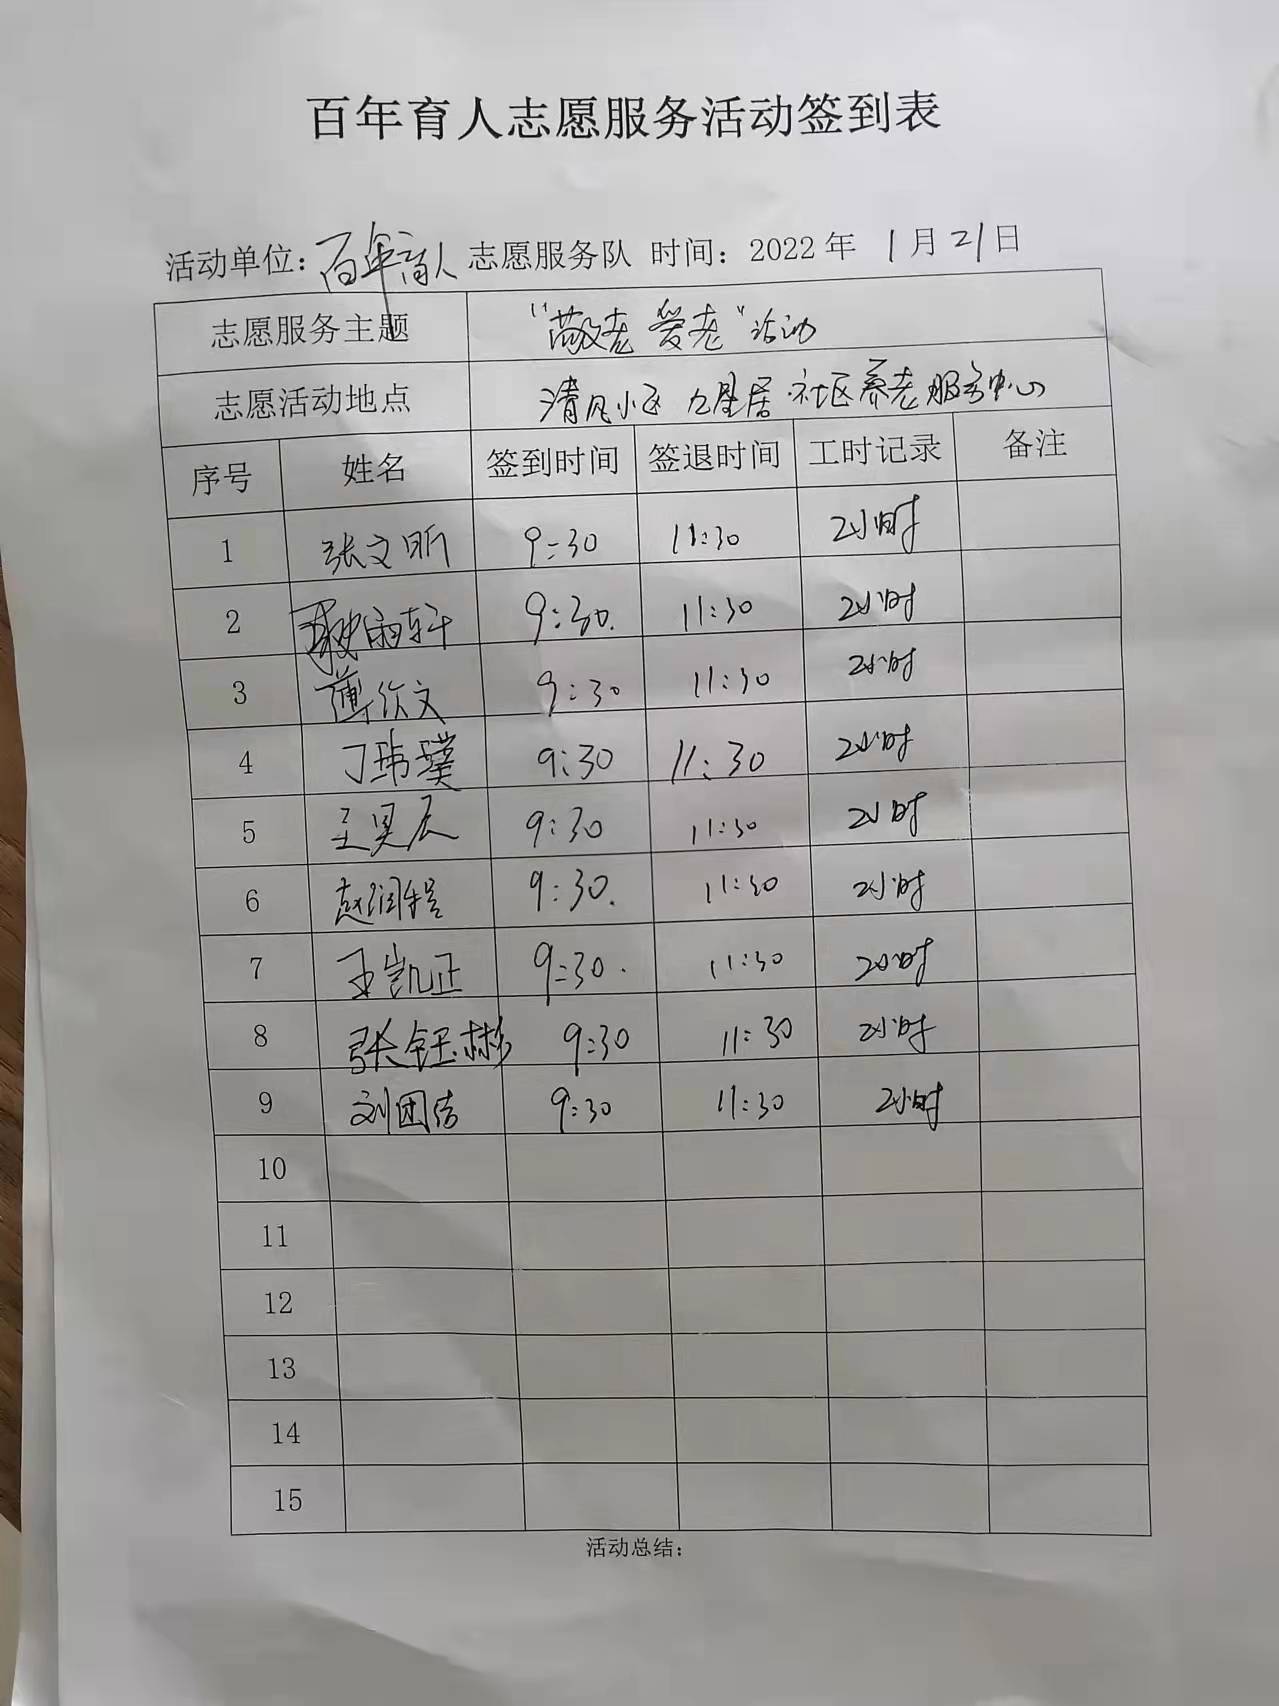 百年育人志愿服务活动签到表
活动单位：百年育人 志愿服务队 时间：2022 年 1 月 21 日
志愿服务主题 “敬老 爱老”活动
志愿活动地点 清风小区 九星居 社区养老服务中心
序号 姓名 签到时间 签退时间 工时记录 备注
1 张文昕 9:30 11:30 2小时
2 雨轩 9:30. 11:30 2小时
3 文 9:30 11:30 2小时
4 丁玮璞 9:30 11:30 2小时
5 王昊辰 9:30 11:30 2小时
6 赵润 9:30. 11:30 2小时
7 王凯正 9:30. 11:30 2小时
8 张钰彬 9:30 11:30 2小时
9 刘团结 9:30 11:30 2小时
10
11
12
13
14
15
活动总结：